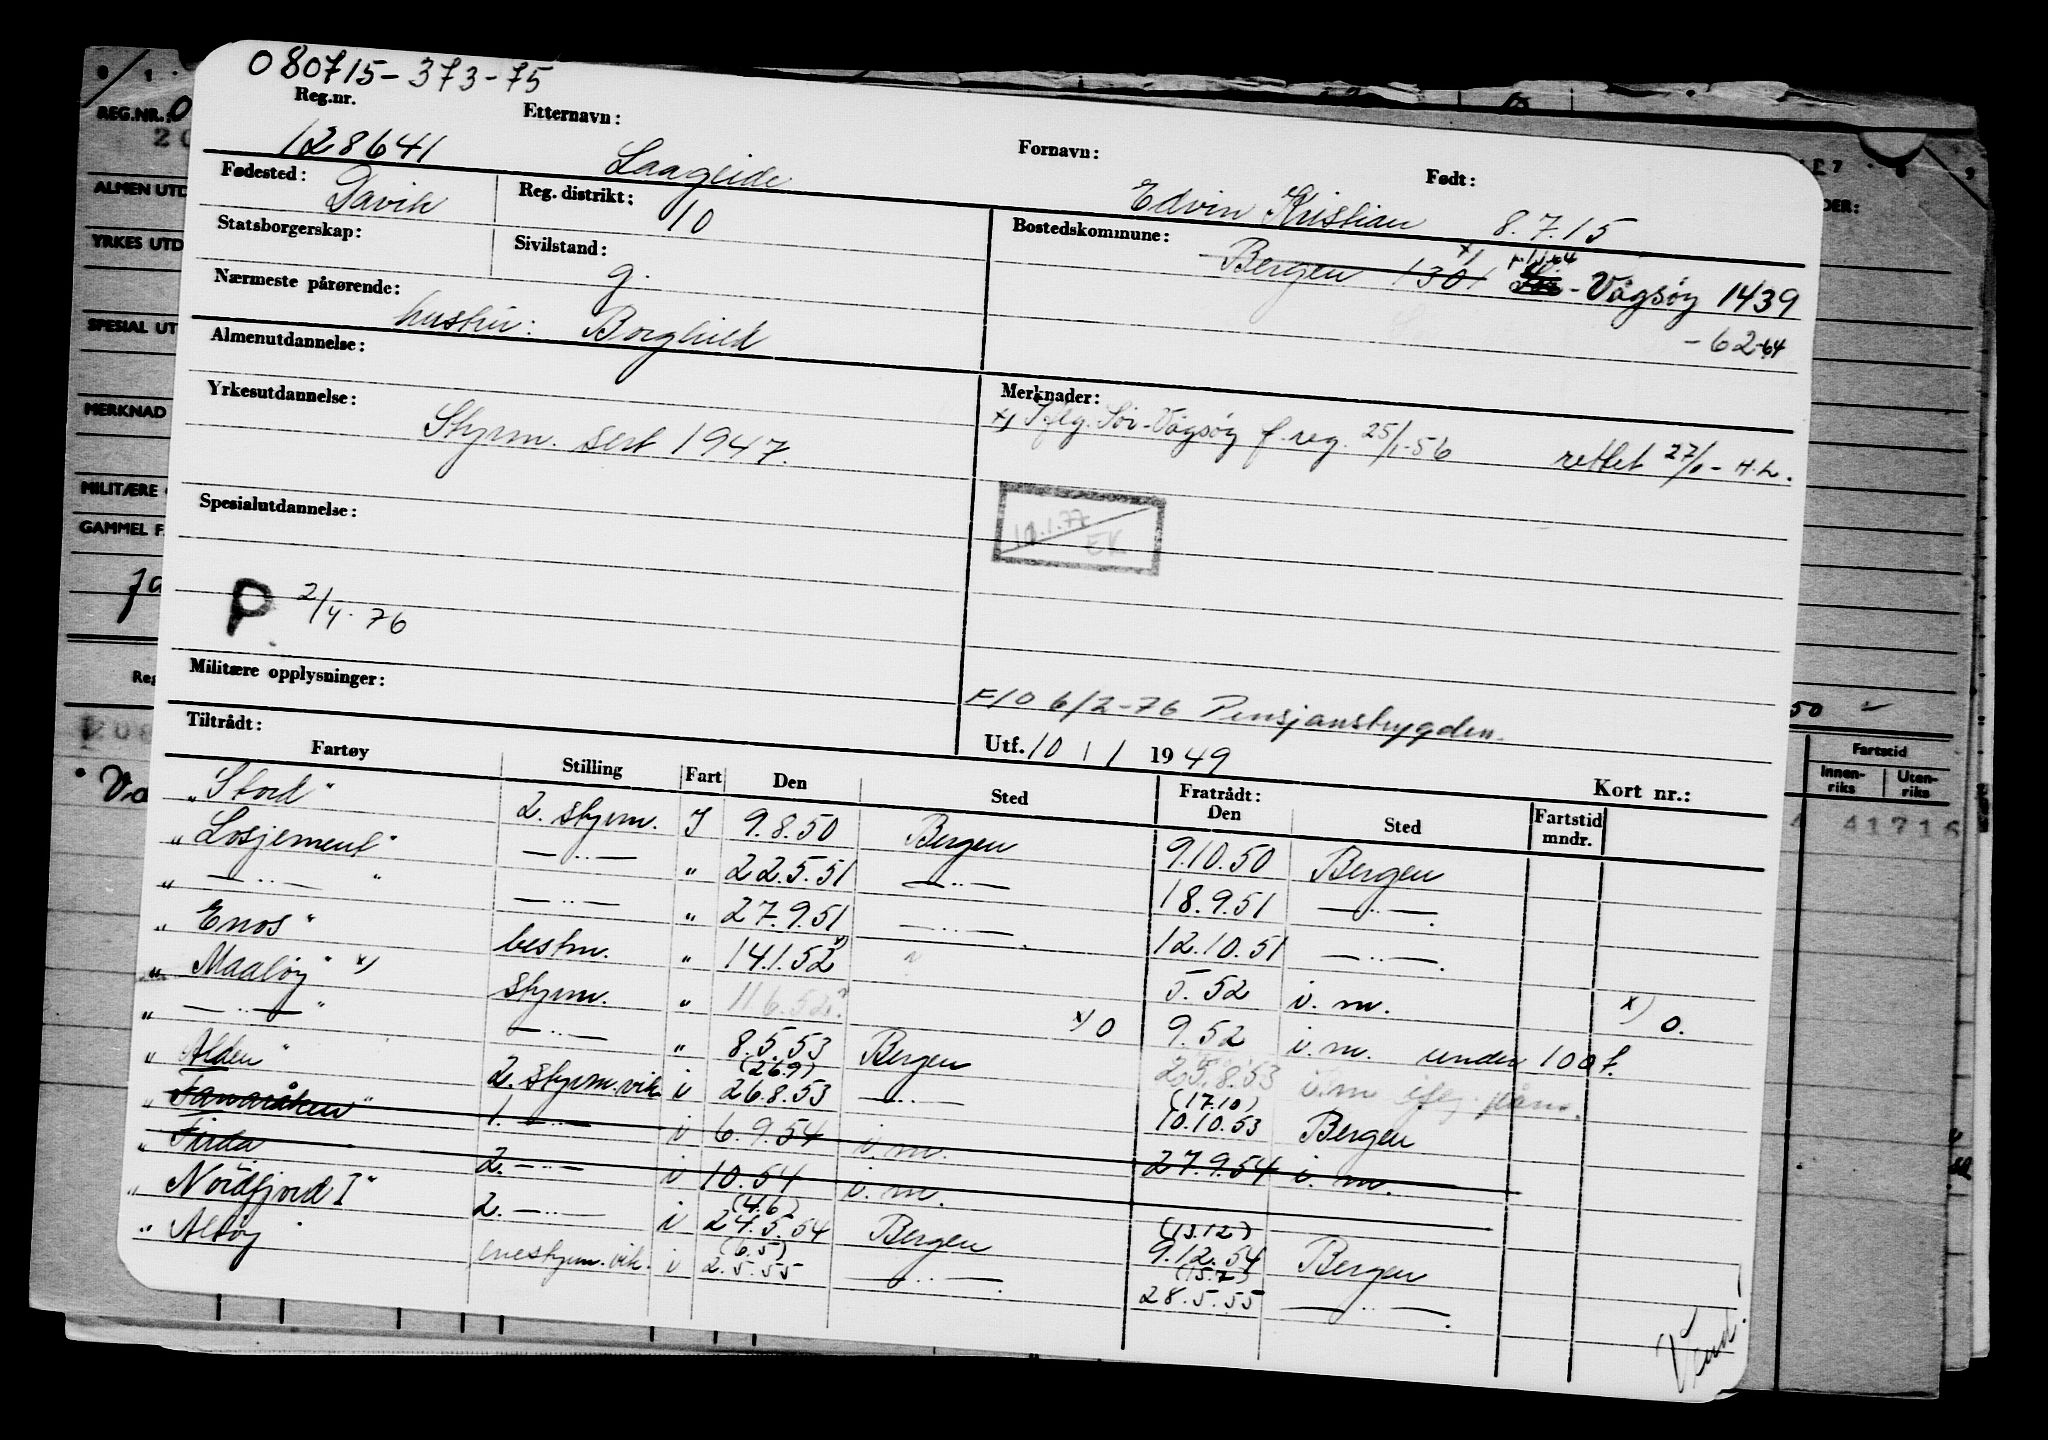 080715-373-75
Reg.nr. Etternavn: Fornavn: Født:
128641 Laageide Edvin Kristian 8.7.15
Fødested: Davik Reg. distrikt: 10 Bostedskommune: Bergen 1301 x) Vågsøy 1439
Statsborgerskap: Sivilstand: g. -62-64
Nærmeste pårørende: hustru: Borghild
Almenutdannelse: Merknader:
x) Iflg. Sør-Vågsøy f. reg. 25/1-56 rettet 27/1- H.L.
Yrkesutdannelse: Styrm. sert 1947.
Spesialutdannelse:
EK
P 2/4-76
Militære opplysninger:
F/O 6/2-76 Pensjonstrygden.
Tiltrådt: Utf. 10 / 1 1949 Kort nr.:
Fartøy Stilling Fart Den Sted Fratrådt: Den Sted Fartstid mndr.
"Stord" 2. styrm. I 9.8.50 Bergen 9.10.50 Bergen
"Losjement" —..— " 22.5.51 —..— 18.9.51 —..—
" —..— " —..— " 27.9.51 —..— 12.10.51 —..—
"Enos" bestm. " 14.1.52 x) " 5.52 i.m.
"Maaløy" x) styrm. " 11.6.52? x) 0 9.52 i.m. under 100 t. x) 0.
" —..— " —..— " 8.5.53 Bergen 25.8.53 i.m iflg.
"Alden" 2. styrm. vik. i (26.9) 26.8.53 —..— (17.10) 10.10.53 Bergen
"Fanaråken" 1. —..— i 6.9.54 i.m. 27.9.54 i.m.
"Firda 2. —..— i 10.54 i.m.
"Nordfjord I" 2. —..— i (4.6) 24.5.54 Bergen (13.12) 9.12.54 Bergen
"Atløy enestyrm. vik. i (6.5) 2.5.55 —..— (15.7) 28.5.55 —..—
Vend!
REG.NR. 0
ALMEN UTD
YRKES UTD
SPESIAL UT
MERKNAD
MILITÆRE
GAMMEL F.
Reg
50
Fartstid
Innen-riks Uten-riks
41716